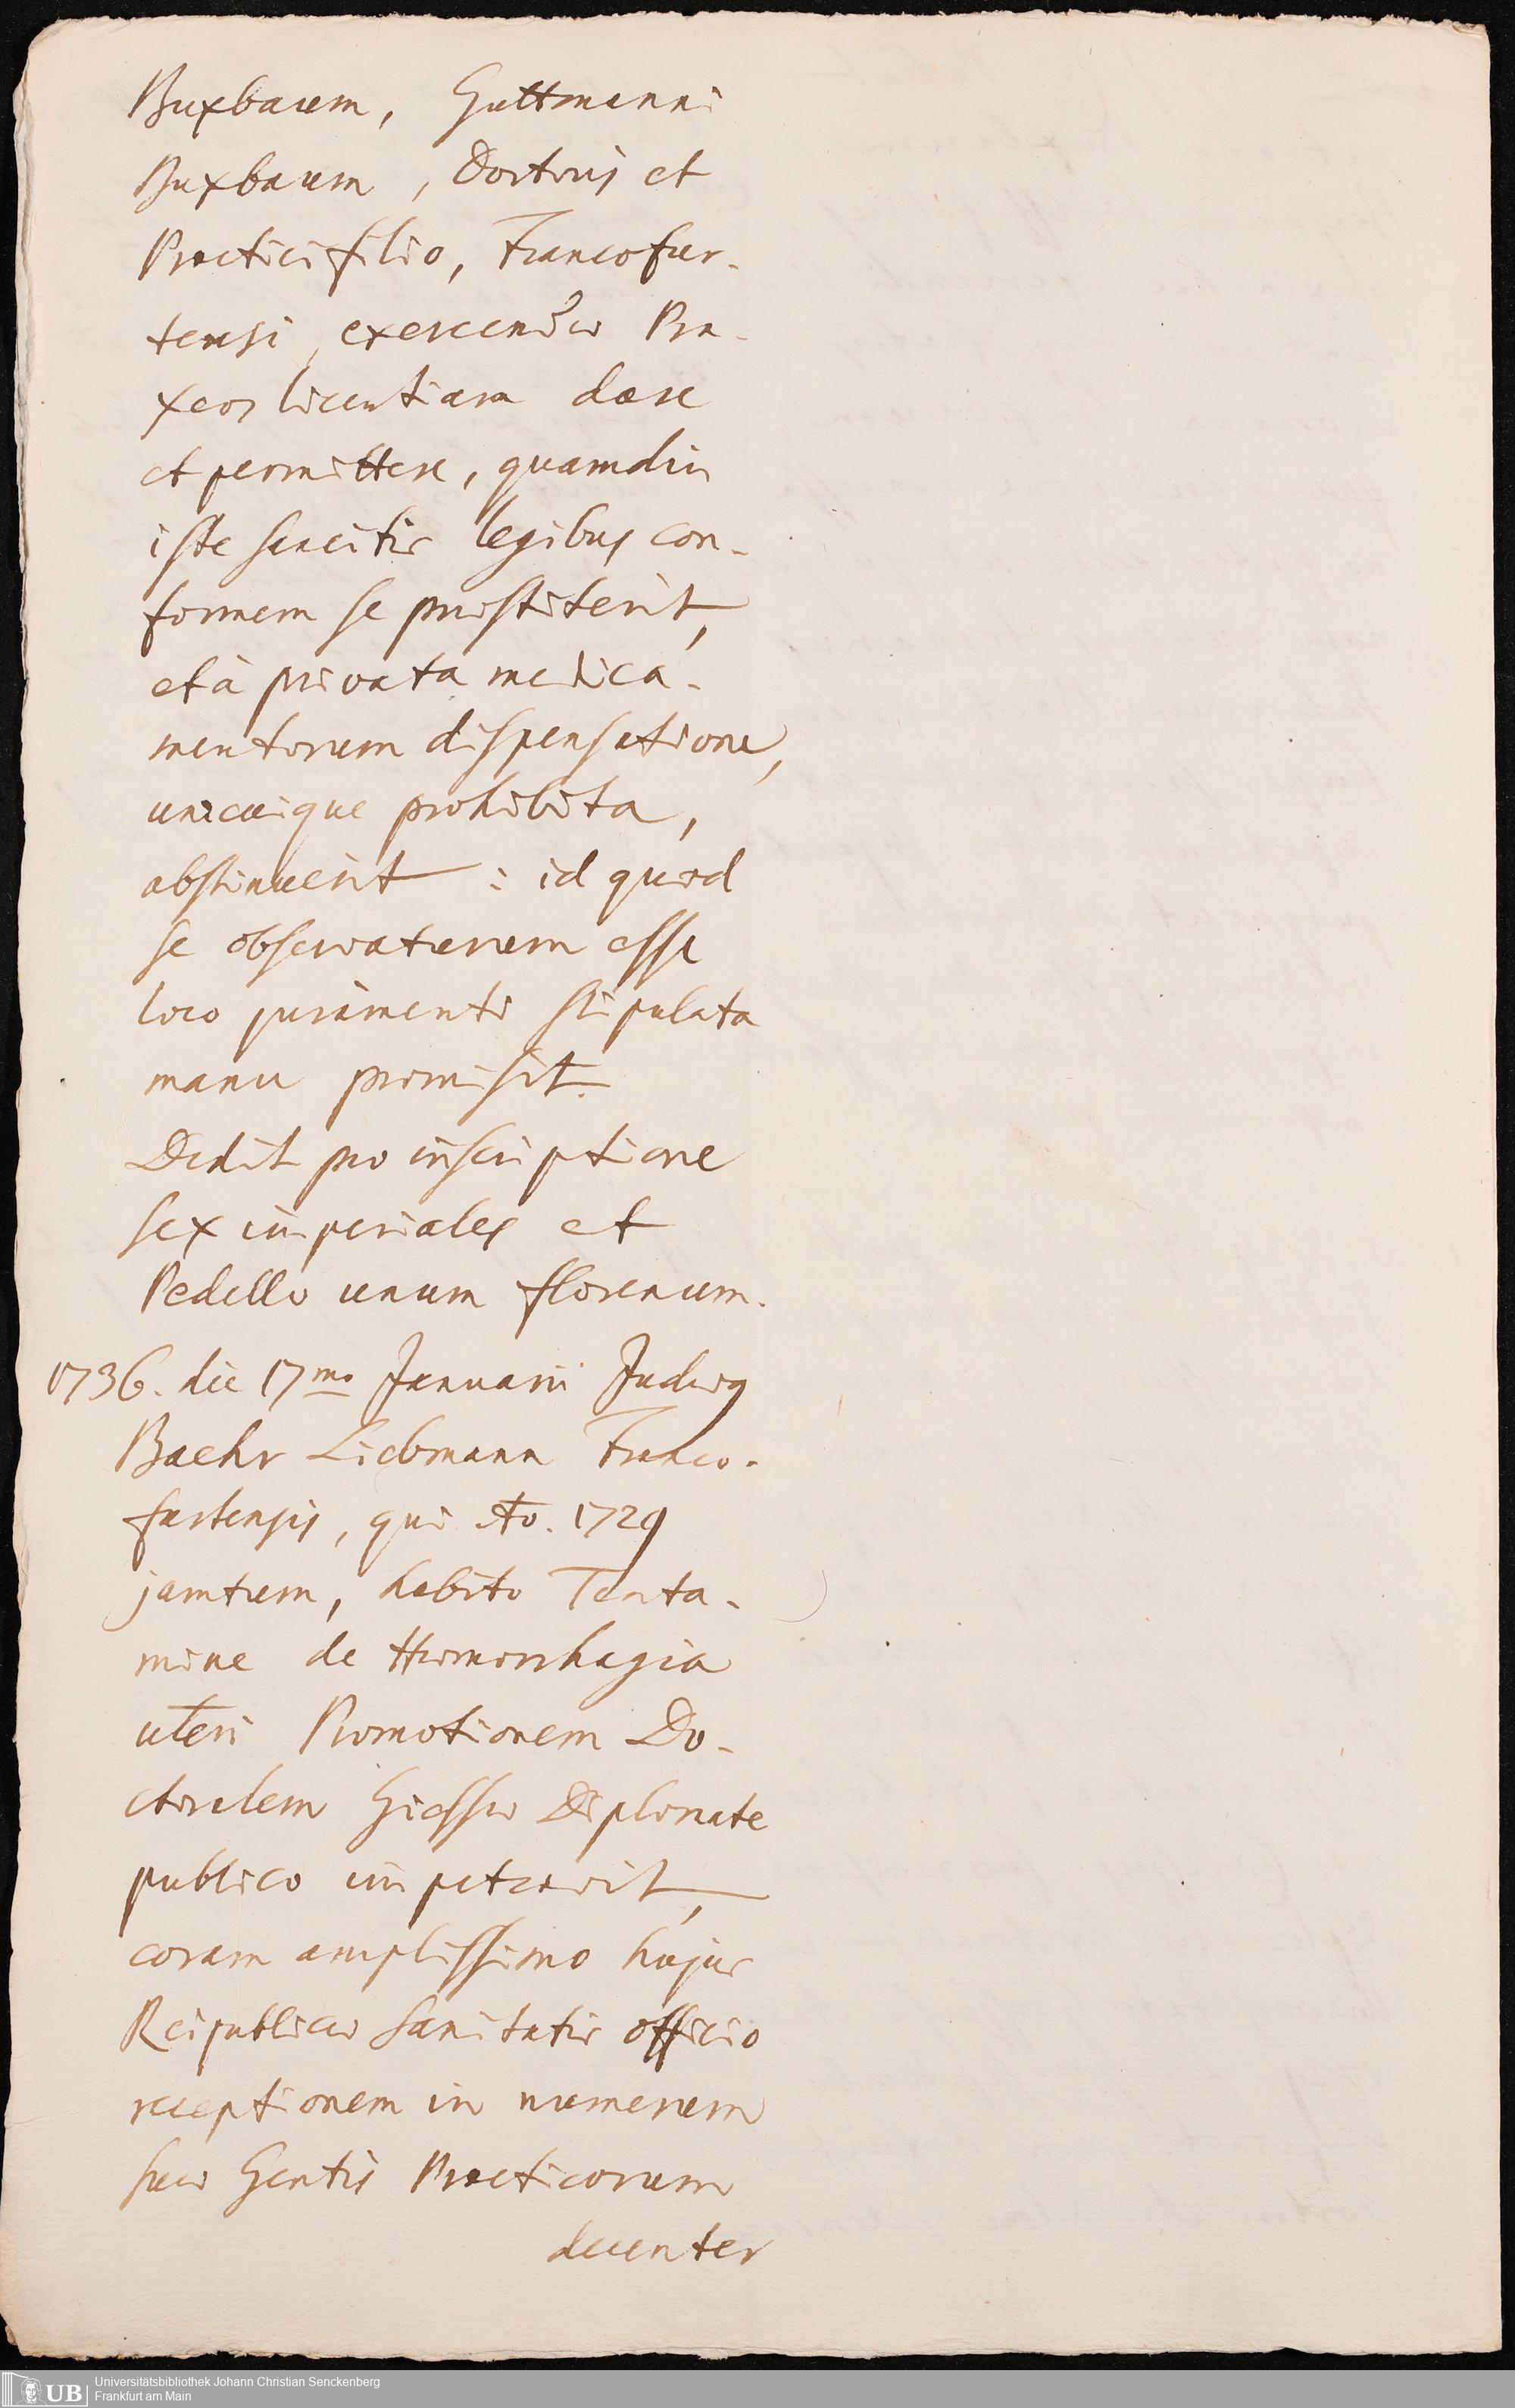 Buxbaum, Guttmanni
Buxbaum, Doctoris et
Practici filio, Francofur-
tensi, exercendæ Pra-
xeos licentiam dare
et permittere, quamdiu
iste sancitis legibus con-
formem se præstiterit,
et à privata medica-
mentorum dispensatione,
unicuique prohibita,
abstinuerit : id quod
se observaturum esse
loco juramenti stipulata
manu promisit.
Dedit pro inscriptione
sex imperiales et
Pedello unum florenum.
1736. die 17mo Januarii Judæq
Baehr Liebmann Franco-
furtensis, qui Ao. 1729
jamtum, habito Tenta-
mine de Hæmorrhagia
uteri Promotionem Do-
ctoralem Giessæ Diplomate
publico impetravit,
coram amplissimo hujus
Reipublicæ Sanitatis officio
receptionem in numerum
suæ Gentis Practicorum
decenter
Universitätsbibliothek Johann Christian Senckenberg
Frankfurt am Main
UB